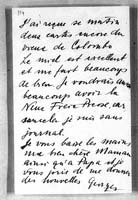 J'ai reçue se matin
deux cartes encore du
vieux de Colombo
Le miel est excellent
et me fait beaucoup
de bien, je voudrais
beaucoup avoir la
Neue Freie Presse, car
sans cela je suis sans
journal.
Je vous baise les mains
ma bien chère Maman
ainsi qu'a Papa et je
vous prie de me donner
des nouvelles Georges